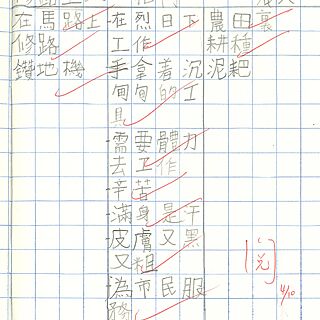 在馬路上
修路
鑽地機
在烈日下
工作
手拿着沉
甸甸的工
具
需要體力
去工作
辛苦
滿身是汗
皮膚又黑
又粗
為市民服
務
農田裏
耕種
泥耙
4/10